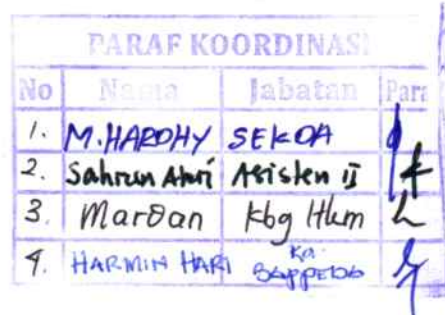 PARAF KOORDINASI
No Nama Jabatan Para
1. M.HARDHY SEKDA
2. Sahrun Amri Asisten II
3. Mardan Kbg Hkm
4. HARMIN HARI Ka. Bappeda